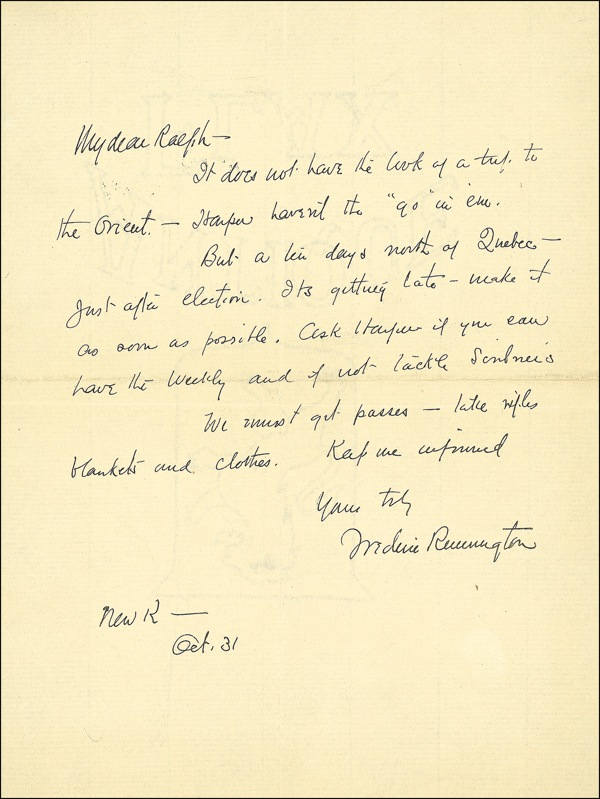 My dear Ralph —
It does not have the look of a trip to
the Orient. — Harper haven't the "go" in 'em.
But a ten days north of Quebec —
Just after election. Its getting late — make it
as soon as possible. Ask Harper if you can
have the Weekly and if not tackle Scribners
We must get passes — take rifles
blankets and clothes. Keep me informed
Yours trly
Frederic Remington
New R —
Oct. 31